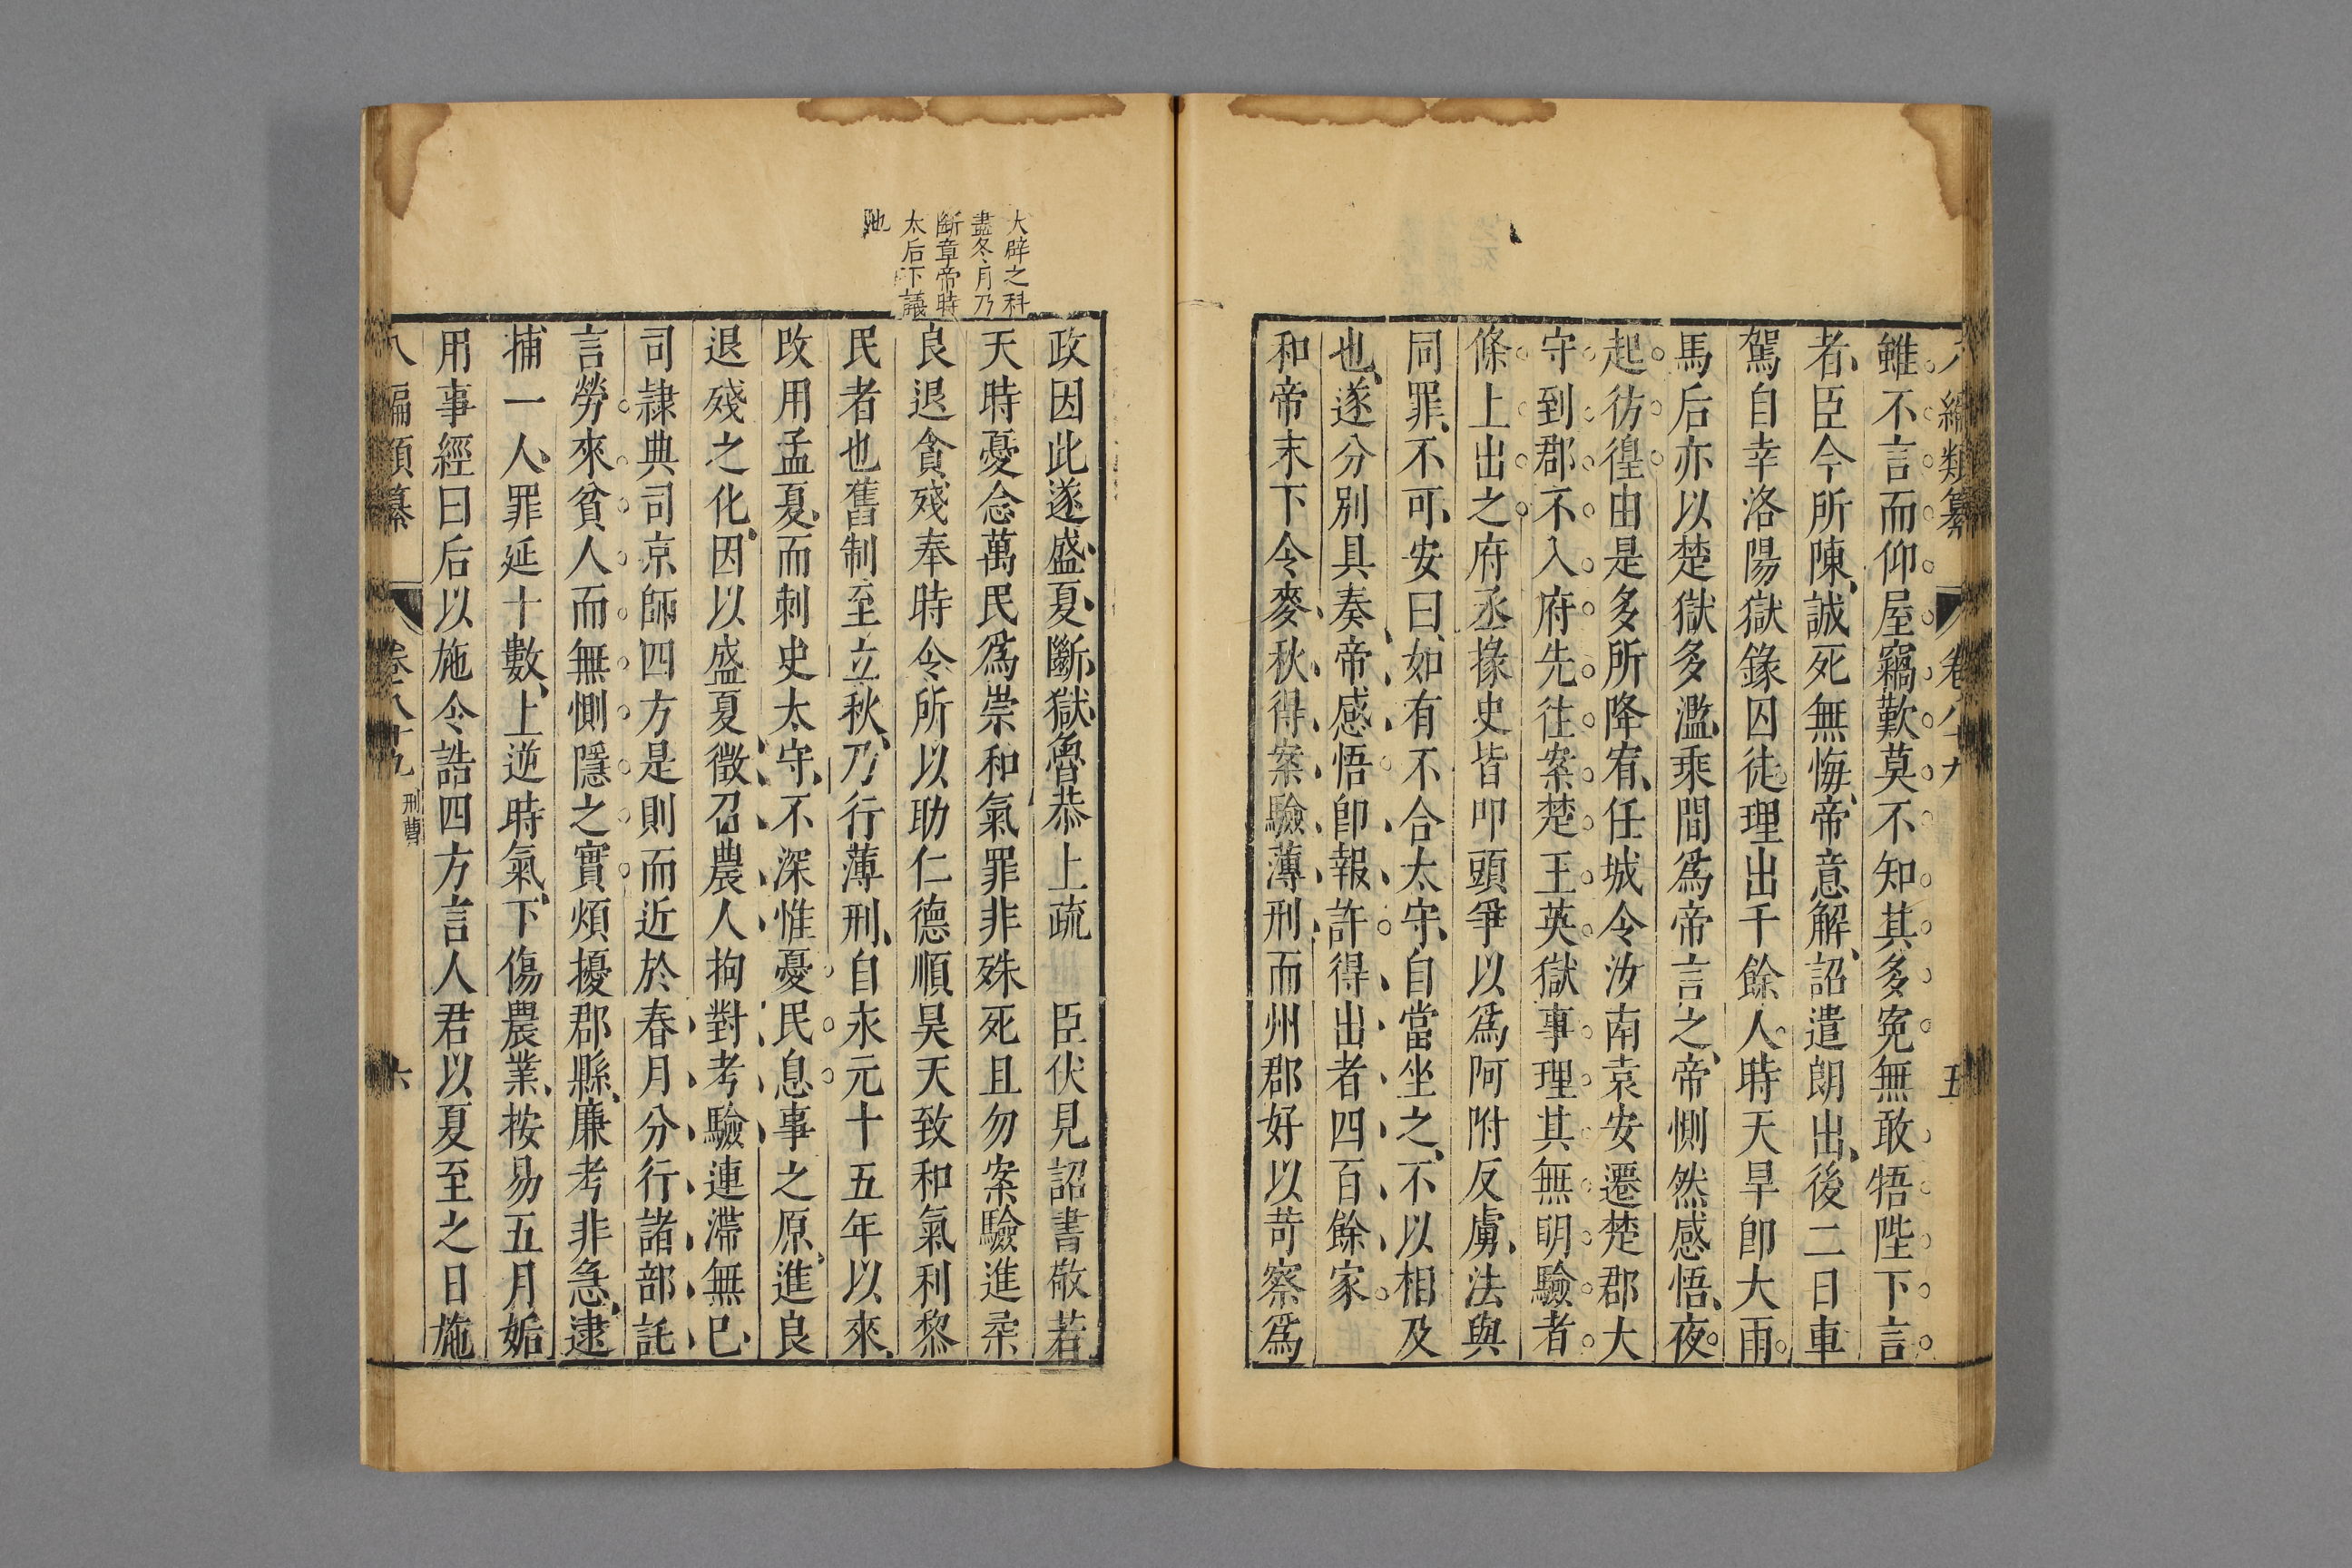 八編類纂 卷八十九 五
雖不言而仰屋竊歎莫不知其多寃無敢牾陛下言
者臣今所陳誠死無悔帝意解詔遣朗出後二日車
駕自幸洛陽獄錄囚徒理出千餘人時天旱卽大雨
馬后亦以楚獄多濫乘間爲帝言之帝惻然感悟夜
起彷徨由是多所降宥任城令汝南袁安遷楚郡大
守到郡不入府先往案楚王英獄事理其無明驗者
條上出之府丞掾史皆叩頭爭以爲阿附反虜法與
同罪不可安曰如有不合太守自當坐之不以相及
也遂分別具奏帝感悟卽報許得出者四百餘家
和帝末下令麥秋得案驗薄刑而州郡好以苛察爲
大辟之科
盡冬月乃
斷章帝時
太后下議
弛
政因此遂盛夏斷獄魯恭上疏 臣伏見詔書敬若
天時憂念萬民爲崇和氣罪非殊死且勿案驗進柔
良退貪殘奉時令所以助仁德順昊天致和氣利黎
民者也舊制至立秋乃行薄刑自永元十五年以來
改用孟夏而刺史太守不深惟憂民息事之原進良
退殘之化因以盛夏徵召農人拘對考驗連滯無已
司隷典司京師四方是則而近於春月分行諸部託
言勞來貧人而無惻隱之實煩擾郡縣廉考非急逮
捕一人罪延十數上逆時氣下傷農業按易五月姤
用事經曰后以施令誥四方言人君以夏至之日施
八編類纂 卷八十九 刑曹 六